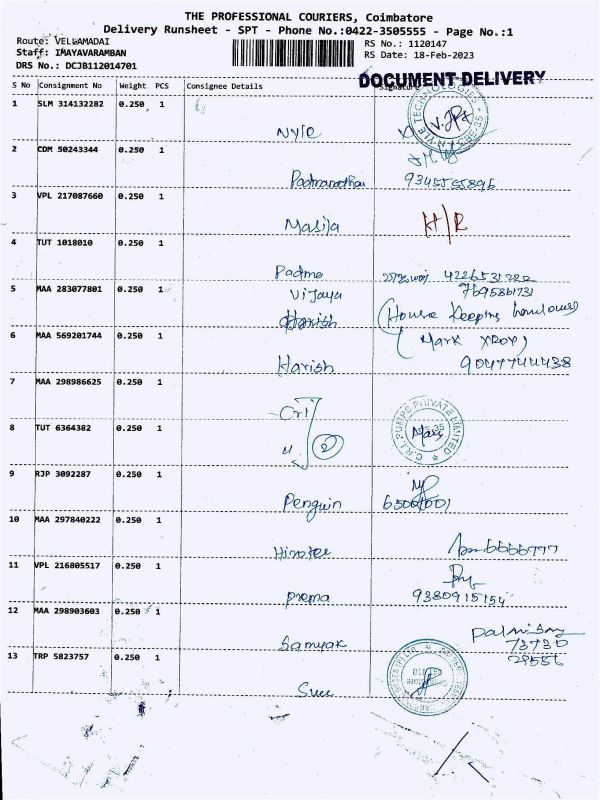 THE PROFESSIONAL COURIERS, Coimbatore
Delivery Runsheet - SPT - Phone No.:0422-3505555 - Page No.:1
Route: VELLAMADAI
RS No.: 1120147
Staff: IMAYAVARAMBAN
RS Date: 18-Feb-2023
DRS No.: DCJB112014701
DOCUMENT DELIVERY
S No Consignment No Weight PCS Consignee Details Signature
1 SLM 314132282 0.250 1
Nyle
2 CDM 50243344 0.250 1
Padmanathan 9345555896
3 VPL 217087660 0.250 1
Masila H/R
4 TUT 1018010 0.250 1
Padma 4226531722
5 MAA 283077801 0.250 1
Vijaya 7695861731
Harish (House Keeping
6 MAA 569201744 0.250 1
Mark
Harish 9047744438
7 MAA 298986625 0.250 1
Cri
8 TUT 6364382 0.250 1
C.R.I. PUMPS PRIVATE LIMITED
9 RJP 3092287 0.250 1
Penguin
10 MAA 297840222 0.250 1
6666777
11 VPL 216805517 0.250 1
Prema 9380915154
12 MAA 298903603 0.250 1
Samyak
73730
13 TRP 5823757 0.250 1
28556